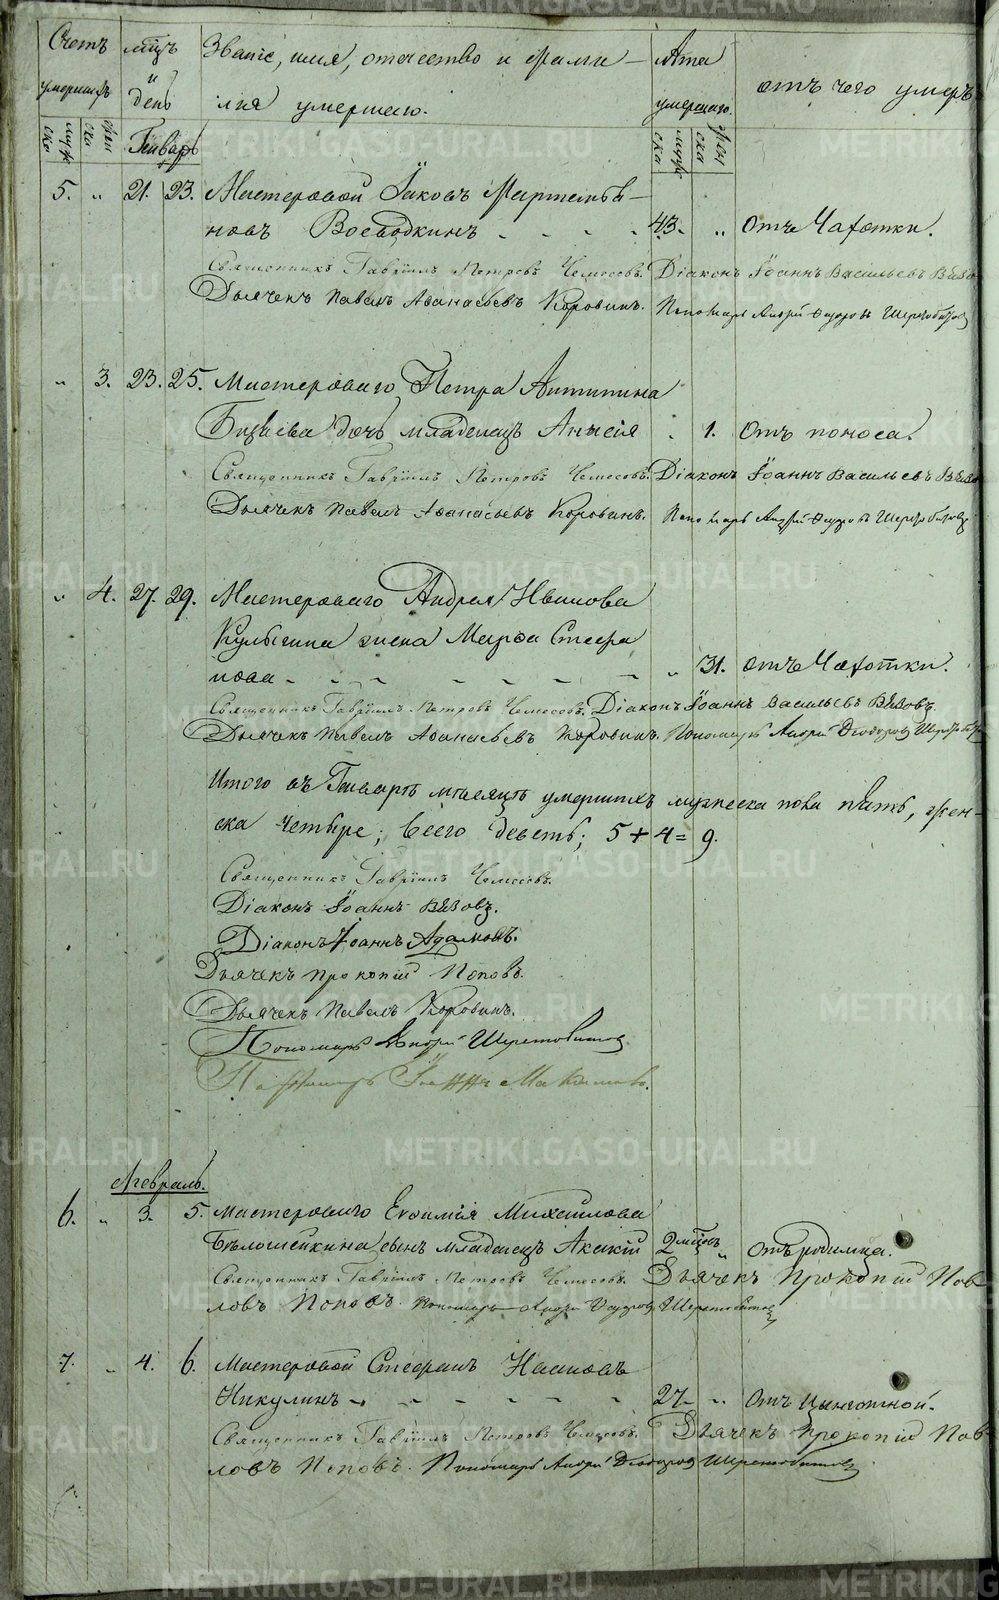 Счетъ умершихъ
мѣцъ и день
Званіе, имя, отечество и фами-
лія умершаго.
Лѣта умершаго.
отъ чего умеръ
муж ско
жен ско
Генварь
муж ска
жен ска
5. „ 21. 23. Мастеровой Іаковъ Мартемья-
новъ Воеводкинъ - - - - 43. „ Отъ Чахотки.
Священникъ Гавріилъ Петровъ Чемесовъ. Діаконъ Іоаннъ Васильевъ Вязо
Дьячекъ Павелъ Аѳанасьевъ Коровинъ. Пономарь Андрей Ѳедоровъ
„ 3. 23. 25. Мастероваго Петра Антипина
дочь младенецъ Анисія „ 1. Отъ поноса.
Священникъ Гавріилъ Петровъ Чемесовъ. Діаконъ Іоаннъ Васильевъ Вязо
Дьячекъ Павелъ Аѳанасьевъ Коровинъ. Пономарь Андрей Ѳедоровъ
„ 4. 27. 29. Мастероваго Андрея Иванова
Кулыгина жена Марѳа Стефа
нова - - - - - - - „ 31. отъ Чахотки.
Священникъ Гавріилъ Петровъ Чемесовъ. Діаконъ Іоаннъ Васильевъ Вязовъ
Дьячекъ Павелъ Аѳанасьевъ Коровинъ. Пономарь Андрей Ѳеодоровъ
Итого въ Генварѣ мѣсяцѣ умершихъ мужеска пола пять, жен-
ска четыре; всего девять; 5 + 4 = 9.
Священникъ Гавріилъ Чемесовъ.
Діаконъ Іоаннъ Вязовъ.
Діаконъ Іоаннъ Адамовъ.
Дьячекъ Прокопій Поповъ.
Дьячекъ Павелъ Коровинъ.
Пономарь Андрей Шеретовитовъ
Пономарь Іоаннъ Максимовъ.
Февраль.
6. „ 3. 5. Мастероваго Евѳимія Михаилова
Бѣлошейкина сынъ младенецъ Акакій 2 мѣсяц „ Отъ родимца.
Священникъ Гавріилъ Петровъ Чемесовъ. Дьячекъ Прокопій Пав
ловъ Поповъ. Пономарь Андрей Ѳедоровъ Шеретовитовъ
7. „ 4. 6. Мастеровой Стефанъ Ивановъ
Никулинъ - - - - - - 27. „ Отъ Цынготной.
Священникъ Гавріилъ Петровъ Чемесовъ. Дьячекъ Прокопій Пав
ловъ Поповъ. Пономарь Андрей Ѳеодоровъ Шеретовитовъ
METRIKI.GASO-URAL.RU